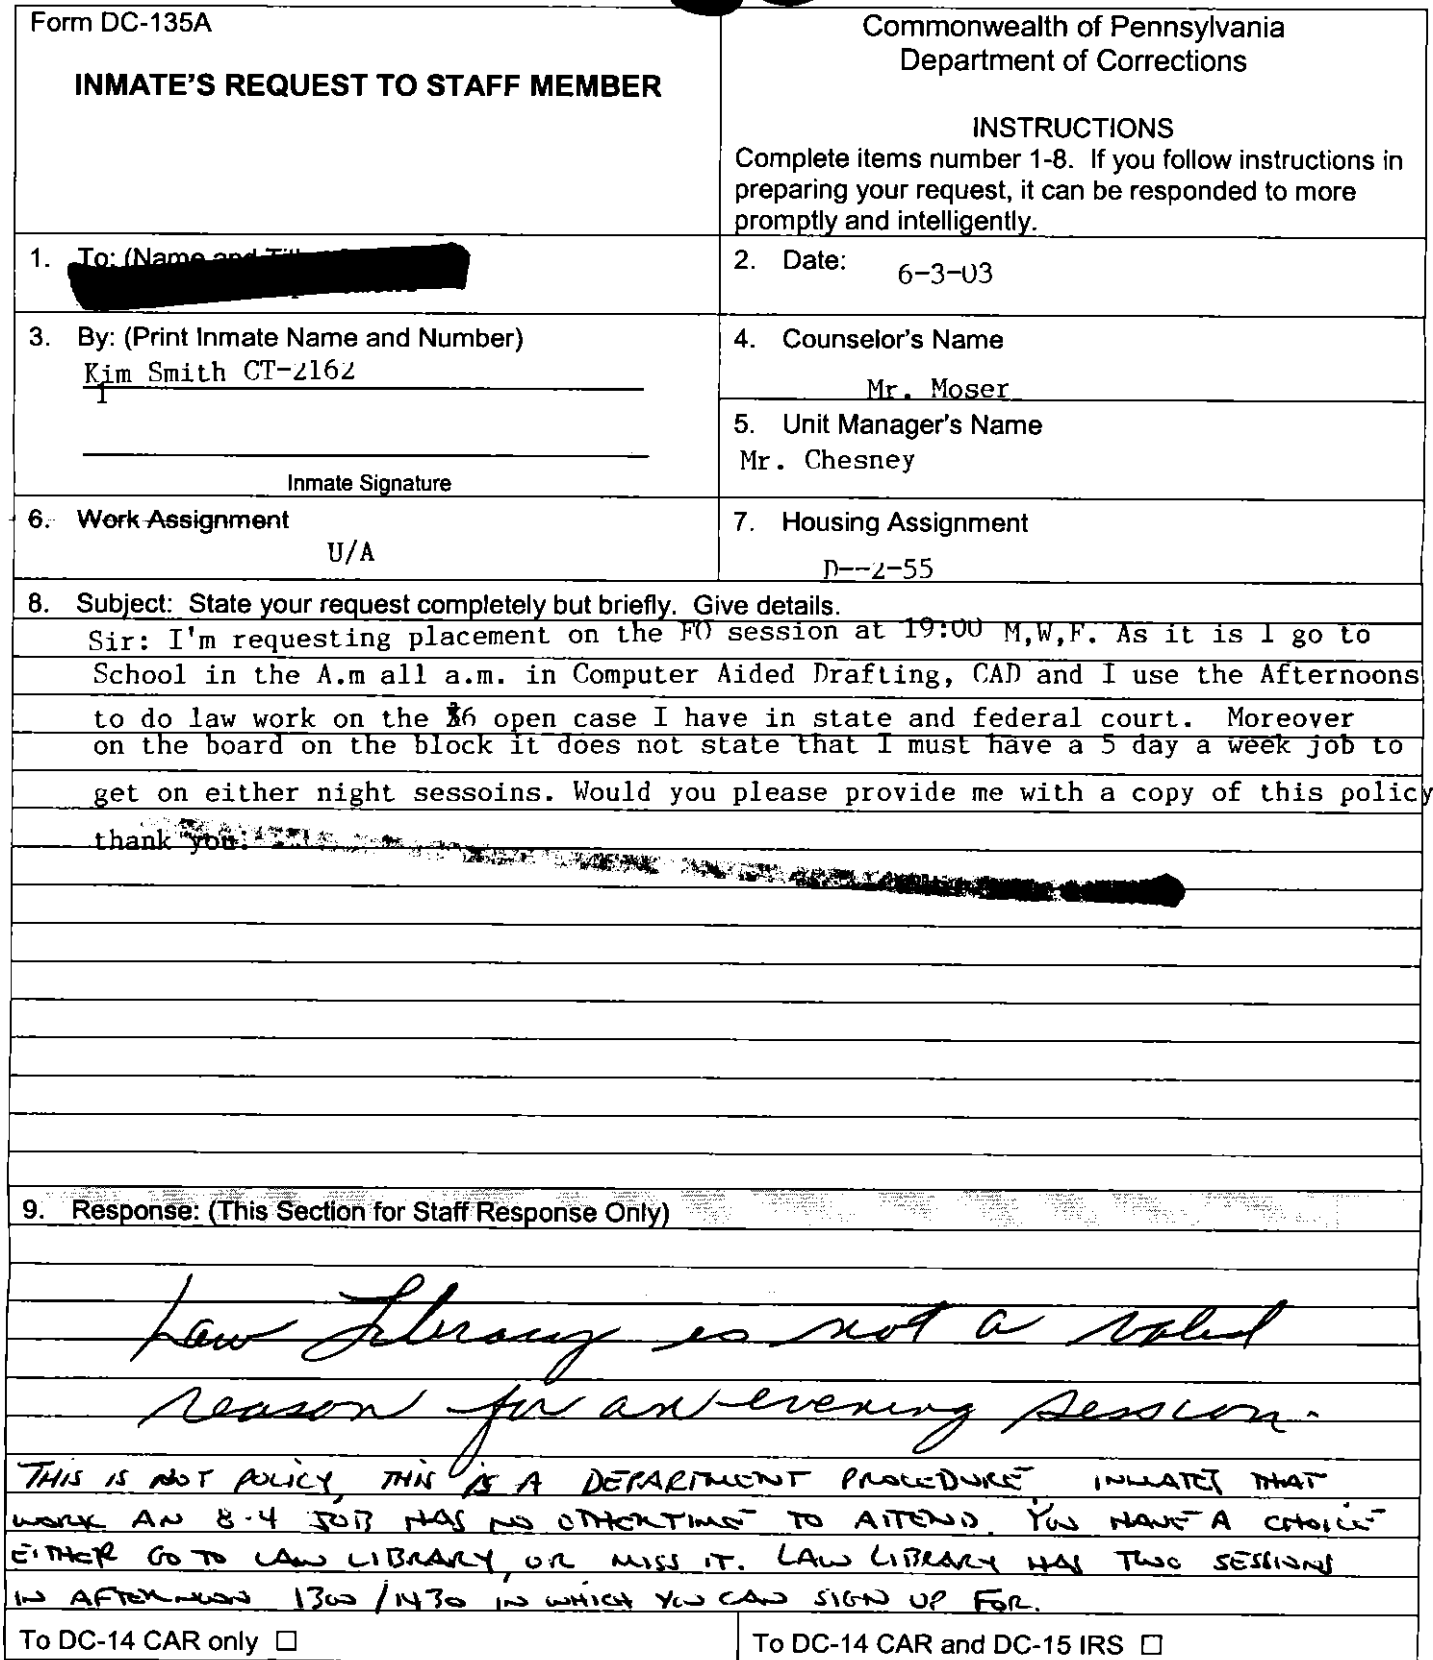 Form DC-135A
INMATE'S REQUEST TO STAFF MEMBER
Commonwealth of Pennsylvania
Department of Corrections
INSTRUCTIONS
Complete items number 1-8. If you follow instructions in
preparing your request, it can be responded to more
promptly and intelligently.
1. To: (Name and
2. Date: 6-3-03
3. By: (Print Inmate Name and Number)
Kim Smith CT-2162
Inmate Signature
4. Counselor's Name
Mr. Moser
5. Unit Manager's Name
Mr. Chesney
6. Work Assignment
U/A
7. Housing Assignment
D--2-55
8. Subject: State your request completely but briefly. Give details.
Sir: I'm requesting placement on the FO session at 19:00 M,W,F. As it is I go to
School in the A.m all a.m. in Computer Aided Drafting, CAD and I use the Afternoons
to do law work on the open case I have in state and federal court. Moreover
on the board on the block it does not state that I must have a 5 day a week job to
get on either night sessoins. Would you please provide me with a copy of this policy
thank you.
9. Response: (This Section for Staff Response Only)
Law Library is not a valid
reason for an evening session.
THIS IS NOT POLICY, THIS IS A DEPARTMENT PROCEDURE INMATES THAT
WORK AN 8-4 JOB HAS NO OTHER TIME TO ATTEND. YOU HAVE A CHOICE
EITHER GO TO LAW LIBRARY OR MISS IT. LAW LIBRARY HAS TWO SESSIONS
IN AFTERNOON 1300/1430 IN WHICH YOU CAN SIGN UP FOR.
To DC-14 CAR only ☐
To DC-14 CAR and DC-15 IRS ☐